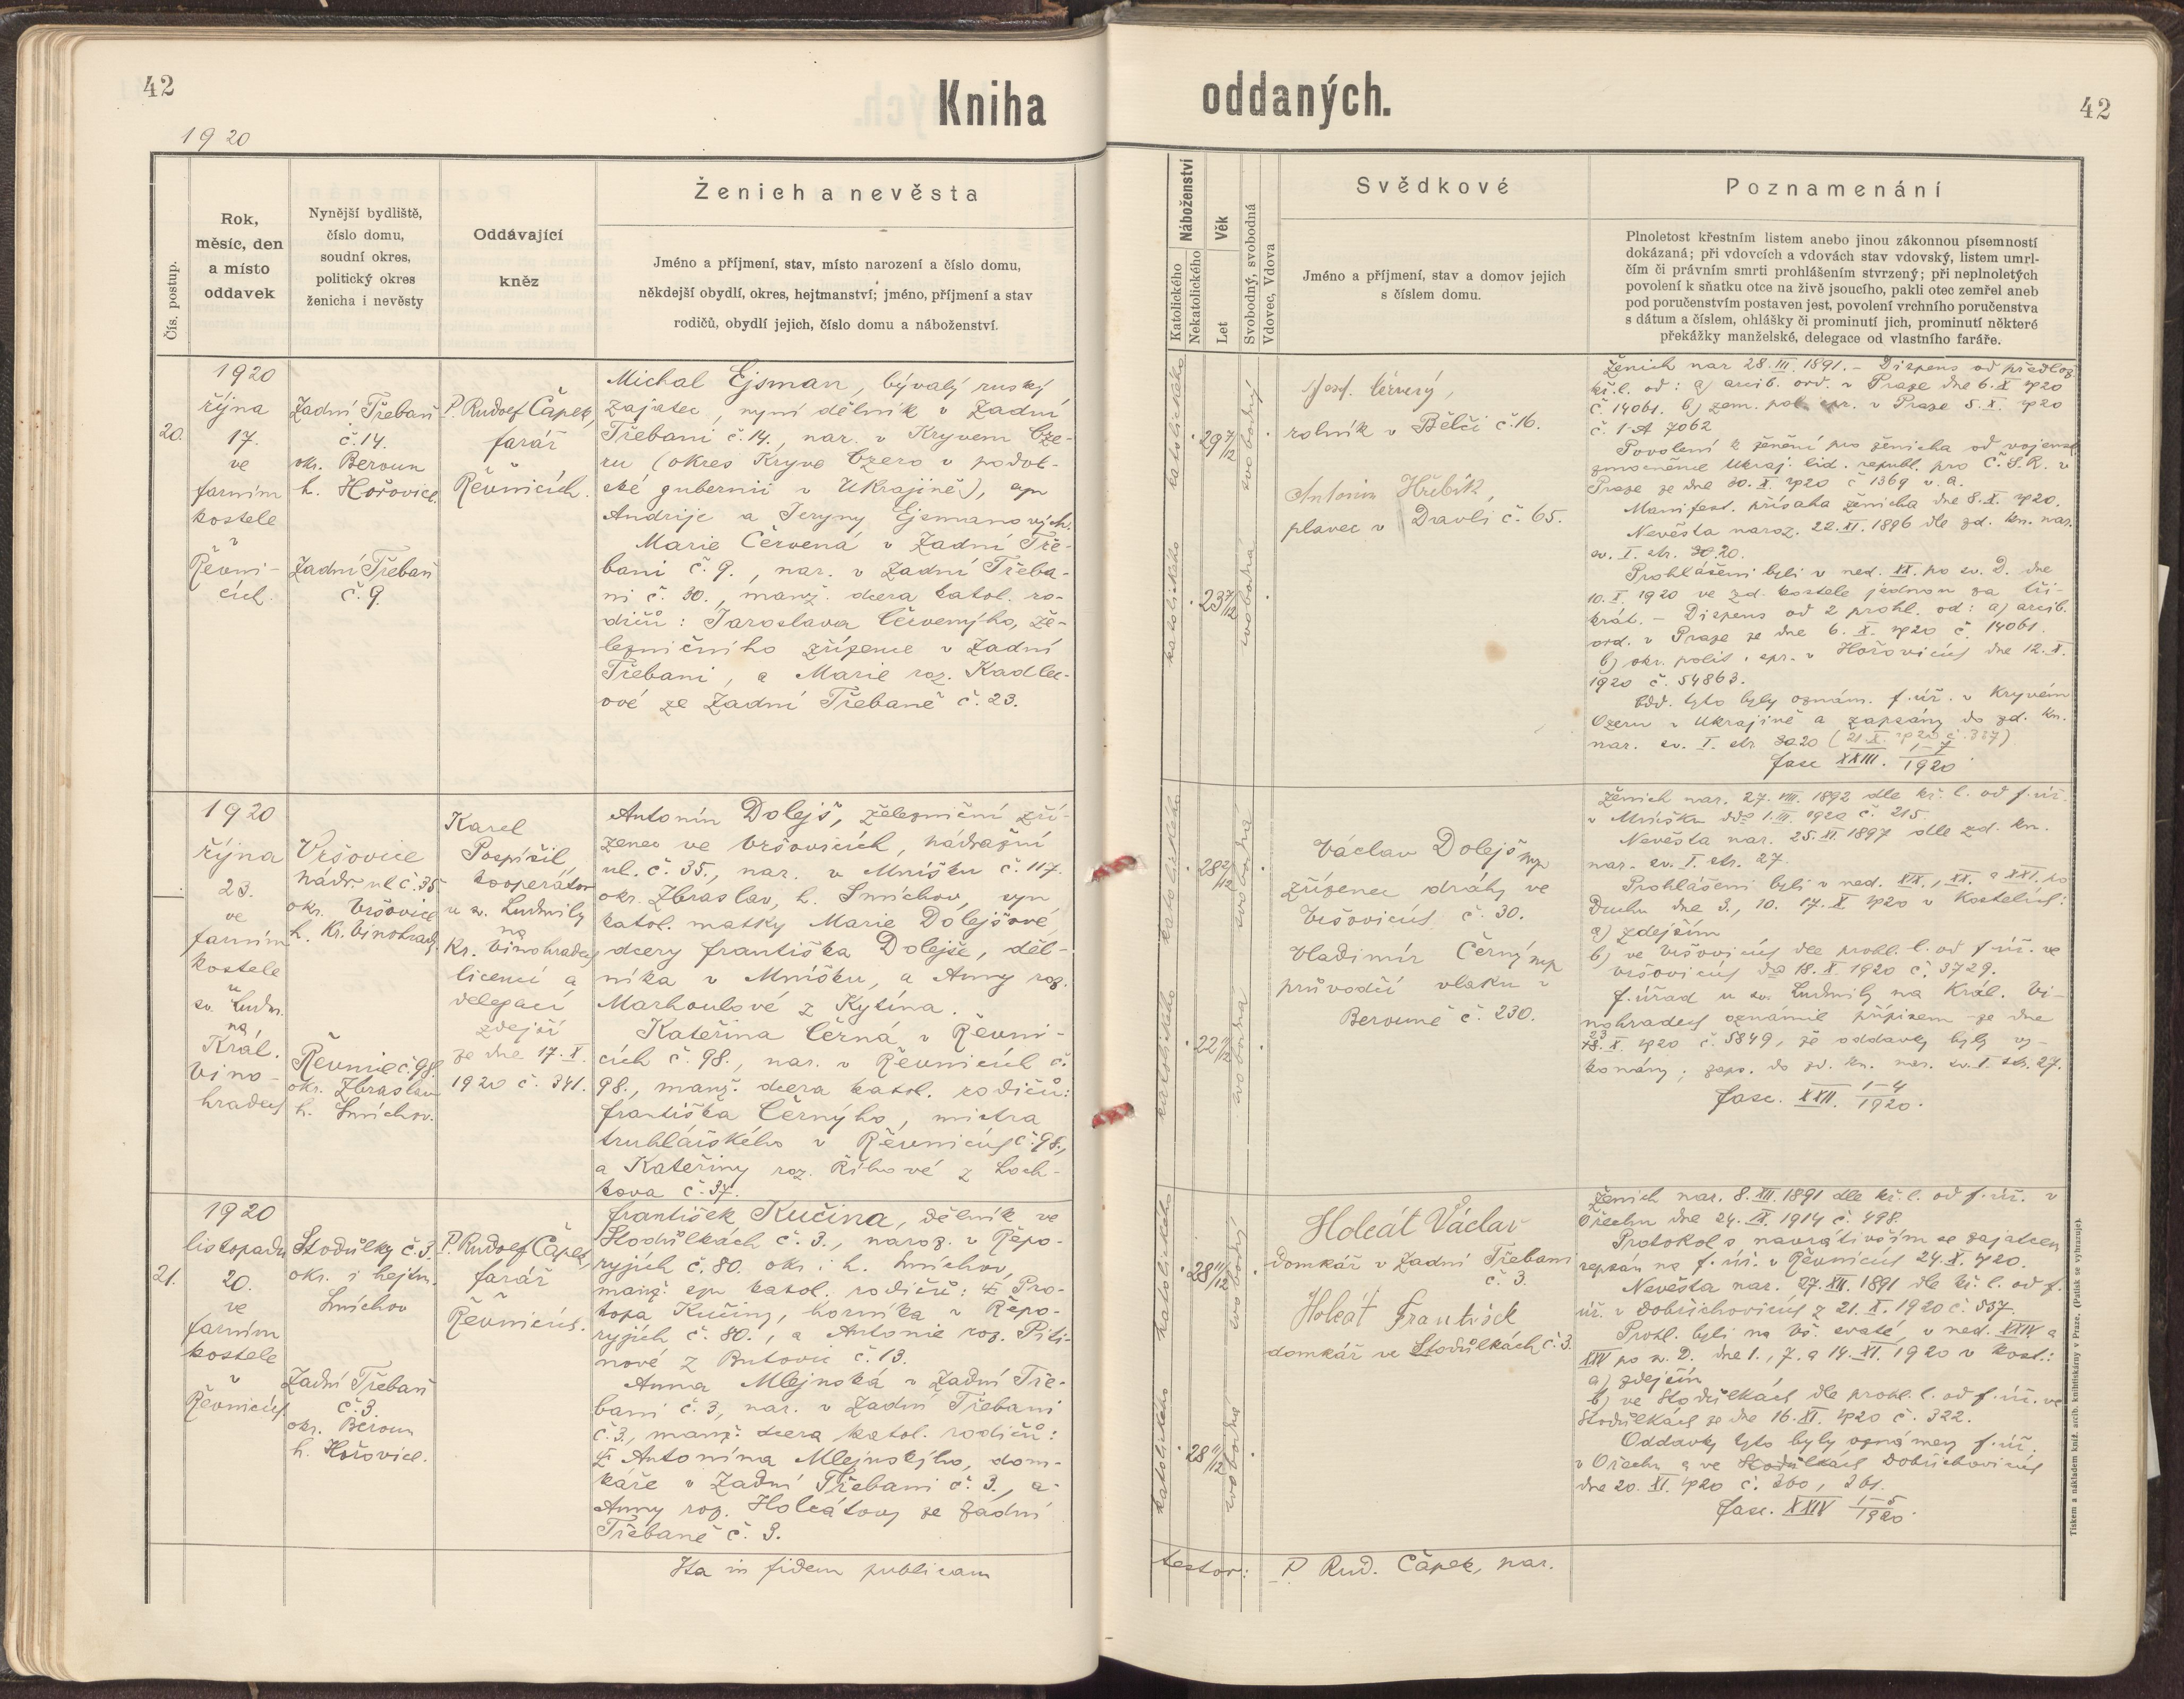 42
Kniha
oddaných.
42
1920
Čís. postup.
Rok,
měsíc, den
a místo
oddavek
Nynější bydliště,
číslo domu,
soudní okres,
politický okres
ženicha i nevěsty
Oddávající
kněz
Ženich a nevěsta
Jméno a příjmení, stav, místo narození a číslo domu,
někdejší obydlí, okres, hejtmanství; jméno, příjmení a stav
rodičů, obydlí jejich, číslo domu a náboženství.
Náboženství
Katolického
Nekatolického
Věk
Let
Svobodný, svobodná
Vdovec, Vdova
Svědkové
Jméno a příjmení, stav a domov jejich
s číslem domu.
Poznamenání
Plnoletost křestním listem anebo jinou zákonnou písemností
dokázaná; při vdovcích a vdovách stav vdovský, listem umrl-
čím či právním smrti prohlášením stvrzený; při neplnoletých
povolení k sňatku otce na živě jsoucího, pakli otec zemřel aneb
pod poručenstvím postaven jest, povolení vrchního poručenstva
s dátum a číslem, ohlášky či prominutí jich, prominutí některé
překážky manželské, delegace od vlastního faráře.
20.
1920
října
17.
ve
farním
kostele
v
Řevni-
cích.
Zadní Třebaň
č. 14.
okr. Beroun
h. Hořovice.
Zadní Třebaň
č. 9.
P. Rudolf Čapek,
farář
v
Řevnicích.
Michal Ejsman, bývalý ruský
zajatec, nyní dělník v Zadní
Třebani č. 14., nar. v Kryvem Oze-
ru (okres Kryvo Ozero v podol-
ské gubernii v Ukrajině), syn
Andrije a Jeryny Ejsmanových.
Marie Červená v Zadní Tře-
bani č. 9., nar. v Zadní Třeba-
ni č. 30., manž. dcera katol. ro-
dičů: Jaroslava Červenýho, že-
lezničního zřízence v Zadní
Třebani, a Marie roz. Kadlec-
ové ze Zadní Třebaně č. 23.
katolického
29 7/12
svobodný
katolického
23 7/12
svobodná
Josef Červený,
rolník v Bělči č. 16.
Antonín Hřebík,
plavec v Dravli č. 65.
Ženich nar 28. III. 1891. – Dispens od předlož.
kř. l. od: a) arcib. ord. v Praze dne 6. X. 1920
č 14061. b) zem. pol. spr. v Praze 5. X. 1920
č. 1-A 7062
Povolení k ženění pro ženicha od vojensk.
zmocněnce Ukraj. lid. republ. pro Č.S.R. v
Praze ze dne 30. X. 1920 č 1369 v. a.
Manifest. přísaha ženicha dne 8. X. 1920.
Nevěsta naroz. 22. XI. 1896 dle zd. kn. nar.
sv. I. str. 20.
Prohlášeni byli v ned. XX. po sv. D. dne
10. X. 1920 ve zd. kostele jednou za tři-
krát. – Dispens od 2 prohl. od: a) arcib.
ord. v Praze ze dne 6. X. 1920 č. 14061.
b) okr. polit. spr. v Hořovicích dne 12. X.
1920 č. 54863.
Odd. tyto byly oznám. f. úř. v Kryvém
Ozeru v Ukrajině a zapsány do zd. kn.
nar. sv. I. str. 20 (21. X. 1920 č. 337)
fasc XXIII. 1–7/1920
1920
října
23.
ve
farním
kostele
u
sv. Ludm.
na
Král.
Vino-
hradech
Vršovice
nádr. ul č. 35
okr. Vršovice
h. Kr. Vinohrady.
Řevnice č. 98.
okr. Zbraslav
h. Smíchov.
Karel
Pospíšil,
kooperátor
u sv. Ludmily
na
Kr. Vinohradech
licencí a
delegací
zdejší
ze dne 17. X.
1920 č. 341.
Antonín Dolejš, železniční zří-
zenec ve Vršovicích, nádražní
ul. č. 35., nar. v Mníšku č. 117.
okr. Zbraslav, h. Smíchov, syn
katol. matky Marie Dolejšové,
dcery Františka Dolejše, děl-
níka v Mníšku, a Anny roz.
Marhoulové z Kytína.
Kateřina Černá v Řevni-
cích č. 98., nar. v Řevnicích č.
98., manž. dcera katol. rodičů:
Františka Černýho, mistra
truhlářského v Řevnicích č. 98.,
a Kateřiny roz. Říhové z Loch-
kova č. 37.
katolického
28 2/12
svobodná
katolického
22 11/12
svobodná
Václav Dolejš mp
zřízenec dráhy ve
Vršovicích č. 30.
Vladimír Černý mp
průvodčí vlaku v
Berouně č. 230.
Ženich nar. 27. VIII. 1892 dle kř. l. od f. úř.
v Mníšku ddo 1. III. 1920 č. 215.
Nevěsta nar. 25. XI 1897 dle zd. kn.
nar. sv. I. str. 27.
Prohlášeni byli v ned. XIX., XX. a XXI. po
Duchu dne 3., 10. 17. X 1920 v kostelích:
a) zdejším
b) ve Vršovicích dle prohl. l. od f. úř. ve
Vršovicích ddo 18. X. 1920 č. 3729.
f. úřad u sv. Ludmily na Král. Vi-
nohradech oznámil přípisem ze dne
23. X. 1920 č. 5849, že oddavky byly vy-
konány; zaps. do zd. kn. nar. sv. I. str. 27.
fasc. XXII. 1–4/1920.
21.
1920
listopadu
20.
ve
farním
kostele
v
Řevnicích
Stodůlky č. 3.
okr. i hejtm.
Smíchov
Zadní Třebaň
č. 3
okr. Beroun
h. Hořovice.
P. Rudolf Čapek,
farář
v
Řevnicích.
František Kučina, dělník ve
Stodůlkách č. 3., naroz. v Řepo-
ryjích č. 80. okr. i h. Smíchov,
manž. syn katol. rodičů: Pro-
kopa Kučiny, horníka v Řepo-
ryjích č. 80., a Antonie roz. Pili-
nové z Butovic č. 13.
Anna Mlejnská v Zadní Tře-
bani č. 3, nar. v Zadní Třebani
č. 3., manž. dcera katol. rodičů:
Antonína Mlejnskýho, dom-
káře v Zadní Třebani č. 3., a
Anny roz. Holcátovy ze Zadní
Třebaně č. 3.
katolického
28 11/12
svobodný
katolického
28 11/12
svobodná
Holcát Václav
domkář v Zadní Třebani
č. 3.
Holcát František
domkář ve Stodůlkách č. 3.
Ženich nar. 8. XII. 1891 dle kř. l. od f. úř. v
Ořechu dne 24. IX. 1914 č. 498.
Protokol s navrátivším se zajatcem
sepsán na f. úř. v Řevnicích 24. X. 1920.
Nevěsta nar. 27. XII. 1891 dle kř. l. od f.
úř. v Dobřichovicích z 21. X. 1920 č. 537.
Prohl. byli na Vš. svaté, v ned. XXIV a
XXV po sv. D. dne 1., 7. a 14. XI. 1920 v kost.:
a) zdejším
b) ve Stodůlkách dle prohl. l. od f. úř. ve
Stodůlkách ze dne 16. XI. 1920 č. 322.
Oddavky tyto byly oznámeny f. úř.
v Ořechu a ve Stodůlkách Dobřichovicích
dne 20. XI. 1920 č. 360, 361.
fasc. XXIV 1–5/1920.
Ita in fidem publicam
testor: P. Rud. Čapek, par.
Tiskem a nákladem kníž. arcib. knihtiskárny v Praze. (Patisk se vyhrazuje).